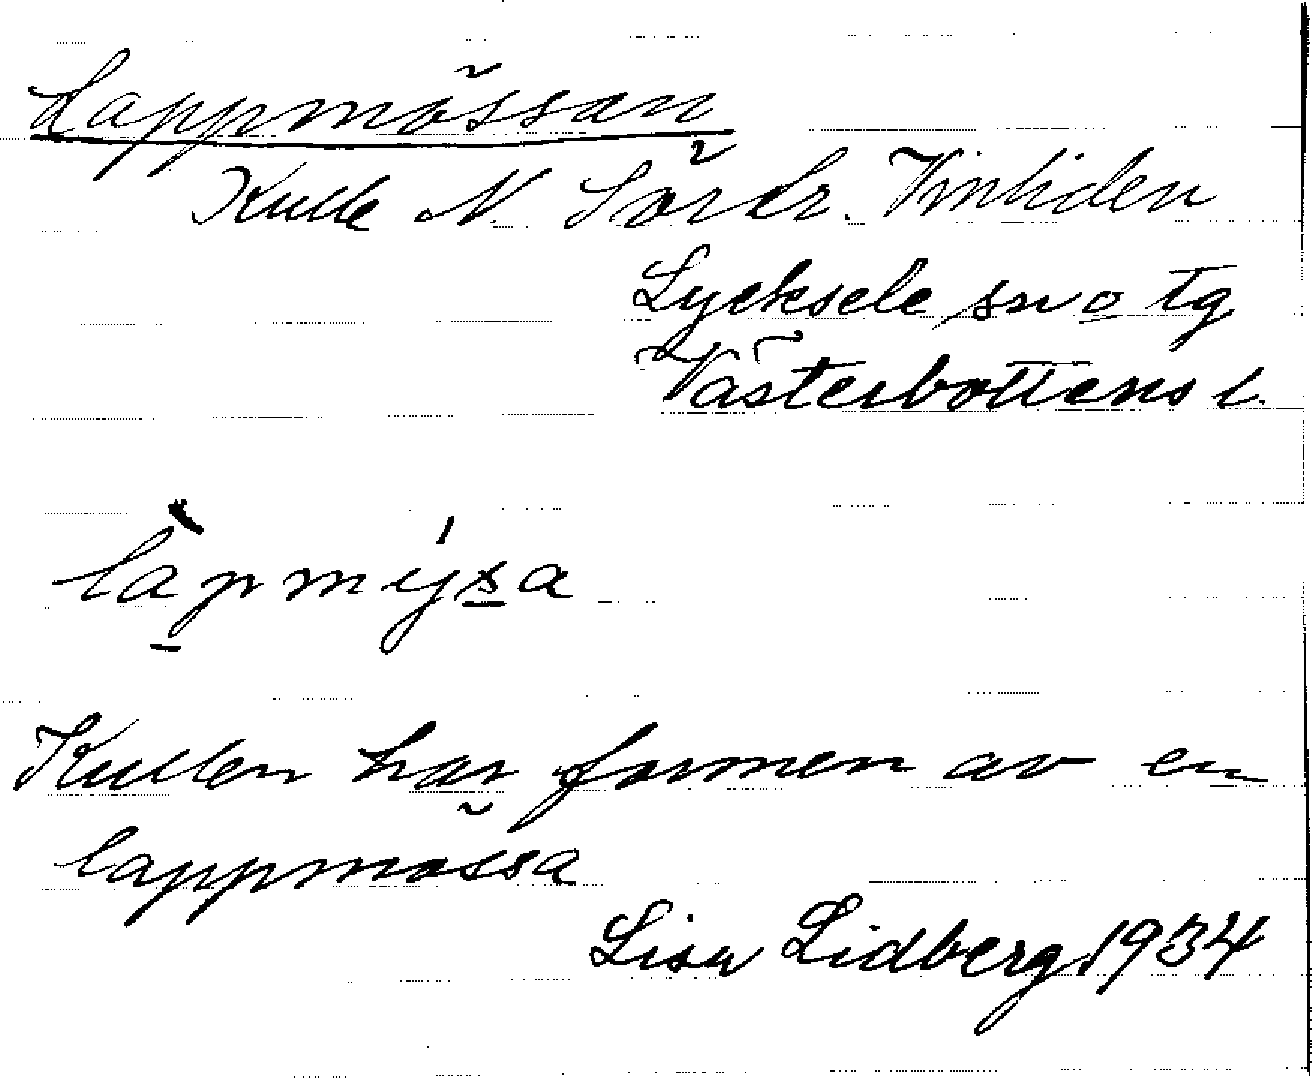 Lappmössan
Kulle N Sör Lr. Vinliden
Lycksele sn o tg
Västerbottens l.
làpmýsa
Kullen har formen av en
lappmössa
Lisa Lidberg 1934